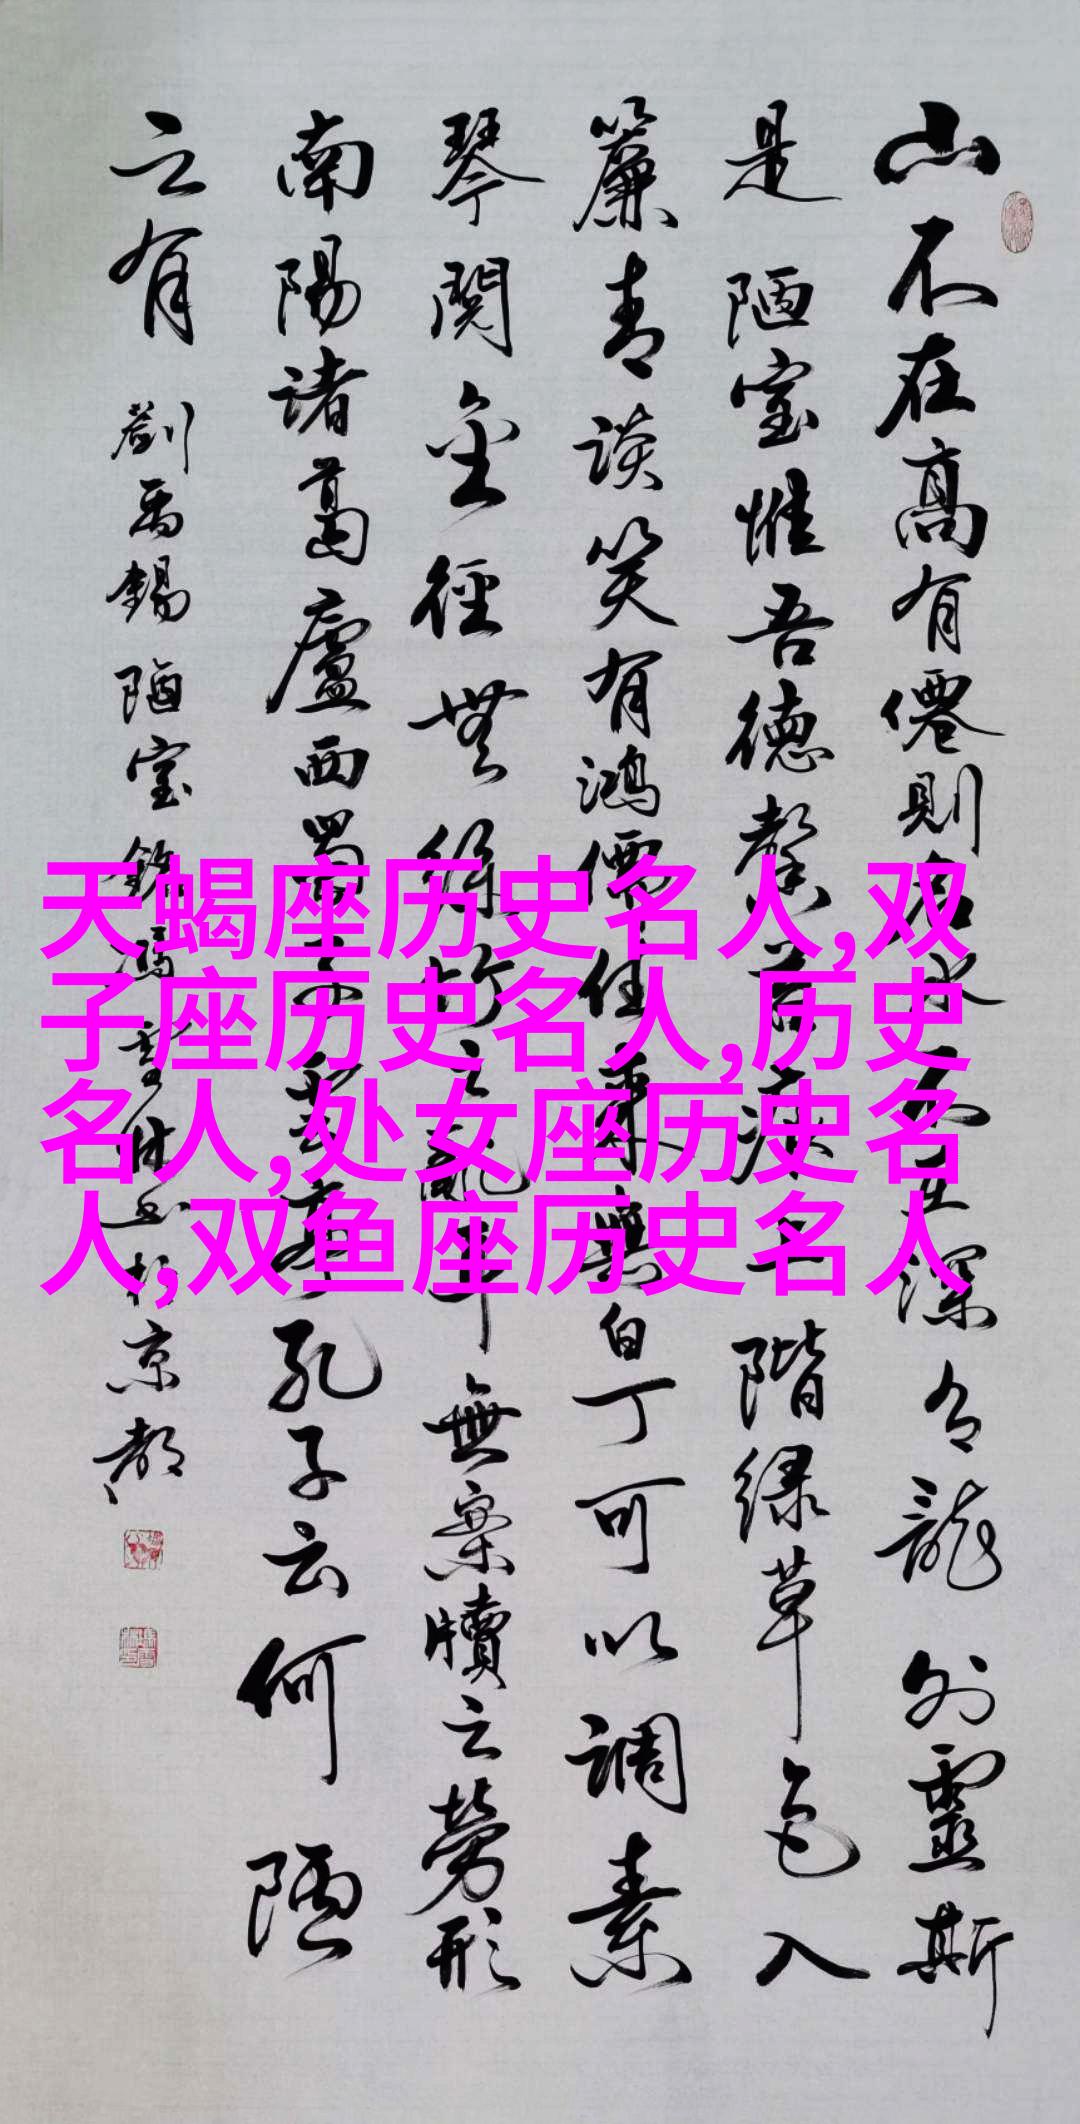 山不在高有僊則名水不在深有龍則靈斯
是陋室惟吾德馨苔痕上階綠草色入
簾青談笑有鴻儒往來無白丁可以調素
琴閱金徑無絲竹之亂耳無案牘之勞形
南陽諸葛廬西蜀子雲亭孔子云何陋
之有
劉禹錫陋室銘馮雪林書於京都
天蝎座历史名人,双
子座历史名人,历史
名人,处女座历史名
人,双鱼座历史名人